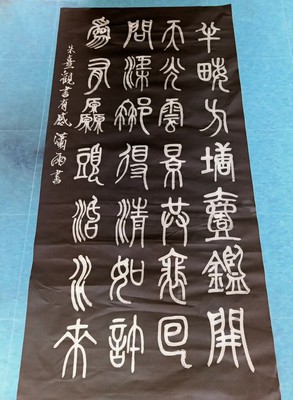 半畝方塘壹鑑開
天光雲景共裵回
問渠那得清如許
爲有厵頭活水來
朱熹觀書有感 瀟雨書